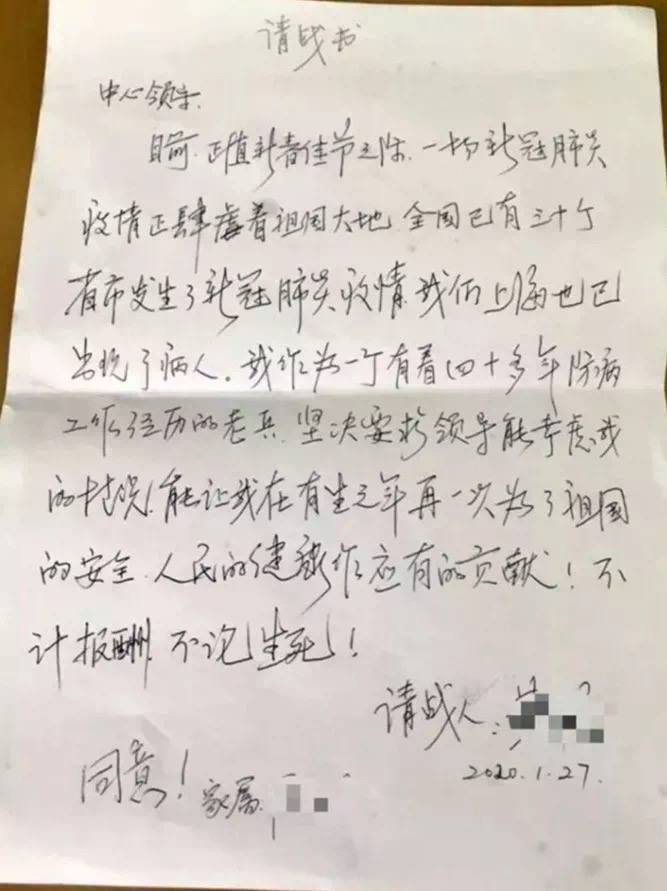 请战书
中心领导.
目前.正值新春佳节之际.一场新冠肺炎
疫情正肆虐着祖国大地.全国已有三十个
省市发生了新冠肺炎疫情.我们上海也已
出现了病人.我作为一个有着四十多年防病
工作经历的老兵.坚决要求领导能考虑我
的情况.能让我在有生之年再一次为了祖国
的安全.人民的健康作应有的贡献!不
计报酬.不论生死!
请战人:
2020.1.27.
同意!家属.